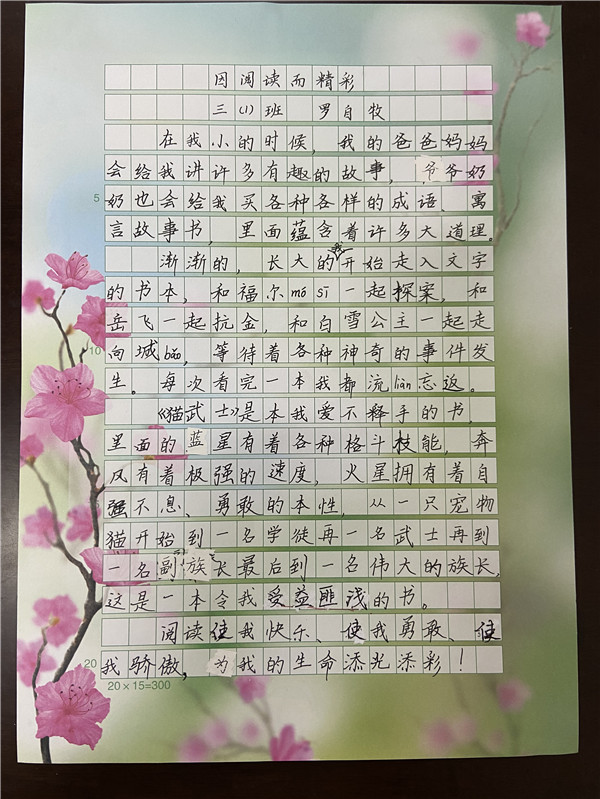 因阅读而精彩
三(1)班 罗自牧
在我小的时候，我的爸爸妈妈
会给我讲许多有趣的故事，爷爷奶
5 奶也会给我买各种各样的成语、寓
言故事书，里面蕴含着许多大道理。
渐渐的，长大的我开始走入文字
的书本，和福尔mó sī一起探案，和
岳飞一起抗金，和白雪公主一起走
10 向城bǎo，等待着各种神奇的事件发
生。每次看完一本我都流lián忘返。
《猫武士》是本我爱不释手的书，
里面的蓝星有着各种格斗技能，奔
风有着极强的速度，火星拥有着自
强不息、勇敢的本性，从一只宠物
猫开始到一名学徒再一名武士再到
一名副族长最后到一名伟大的族长，
这是一本令我受益匪浅的书。
阅读使我快乐、使我勇敢、使
20 我骄傲，为我的生命添光添彩！
20×15=300